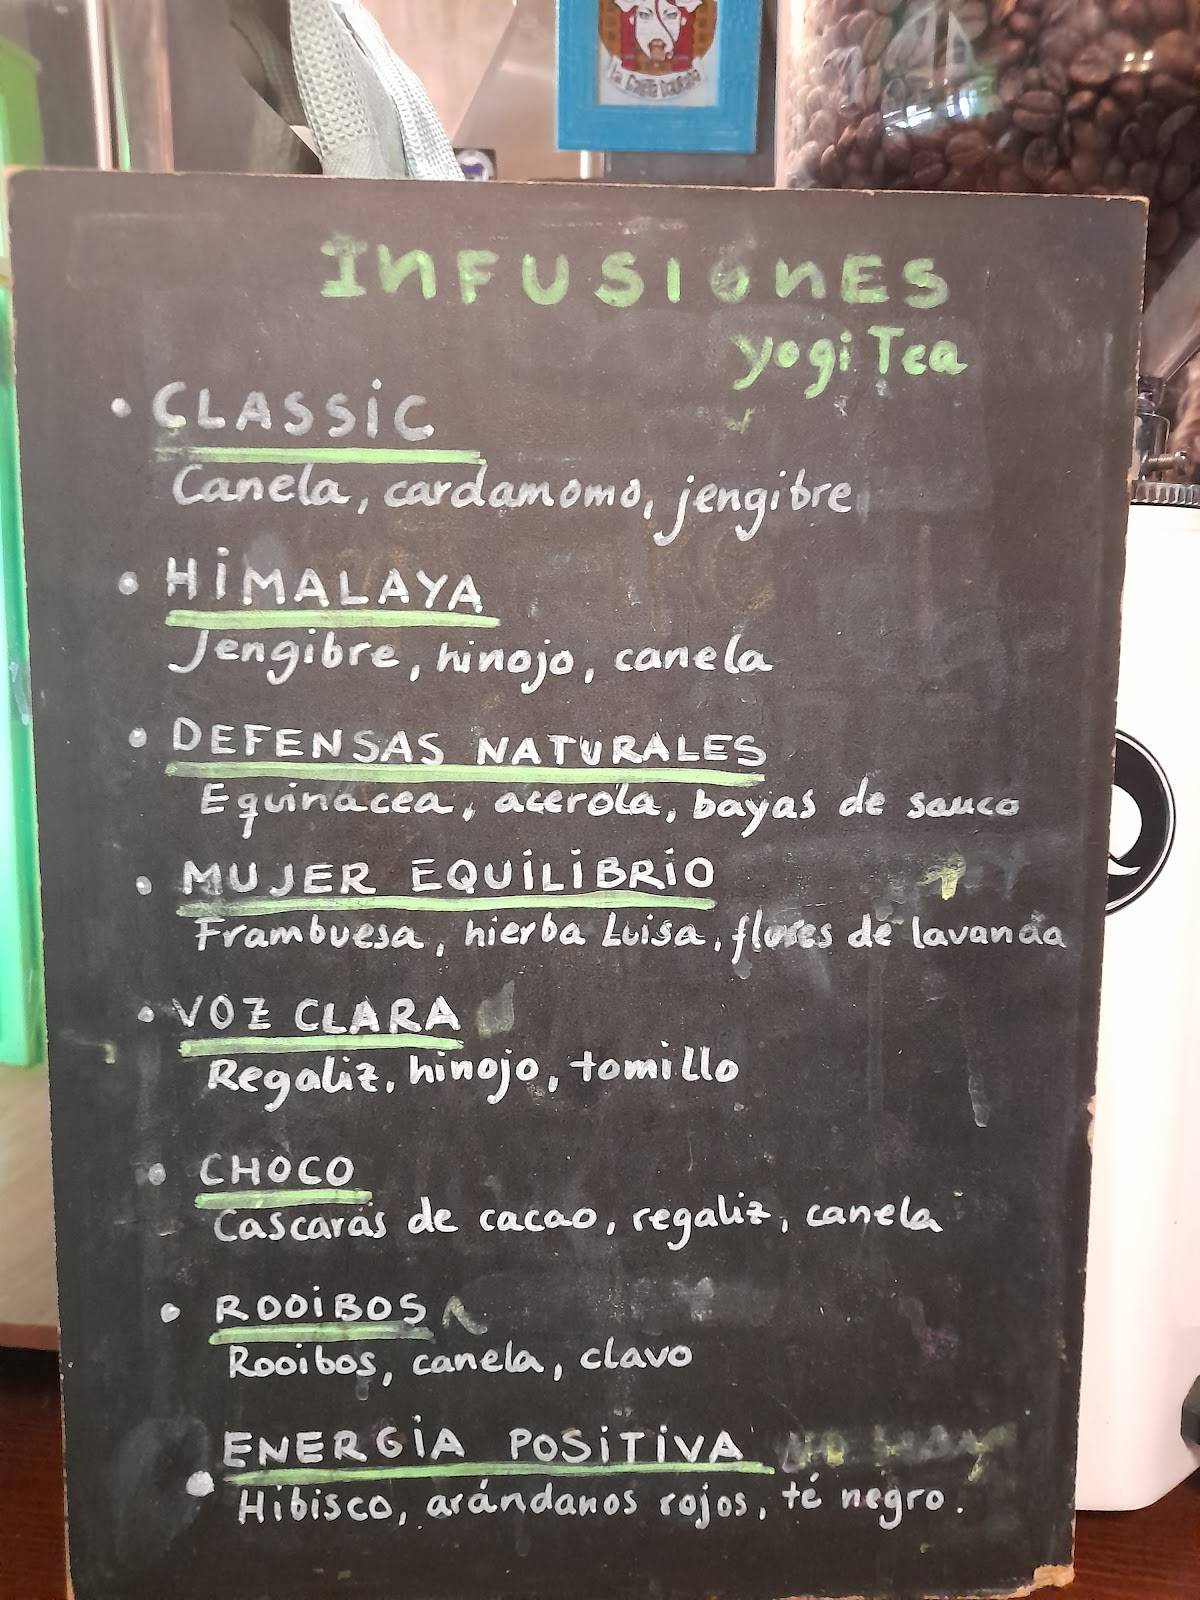 INFUSIONES
yogi Tea
• CLASSIC
Canela, cardamomo, jengibre
• HIMALAYA
Jengibre, hinojo, canela
• DEFENSAS NATURALES
Equinacea, acerola, bayas de sauco
• MUJER EQUILIBRIO
Frambuesa, hierba Luisa, flores de lavanda
• VOZ CLARA
Regaliz, hinojo, tomillo
• CHOCO
Cascaras de cacao, regaliz, canela
• ROOIBOS
Rooibos, canela, clavo
• ENERGIA POSITIVA
Hibisco, arándanos rojos, té negro.